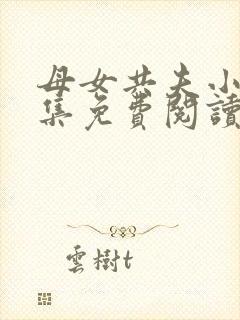 母女共夫小
集免費閱讀
雲樹t